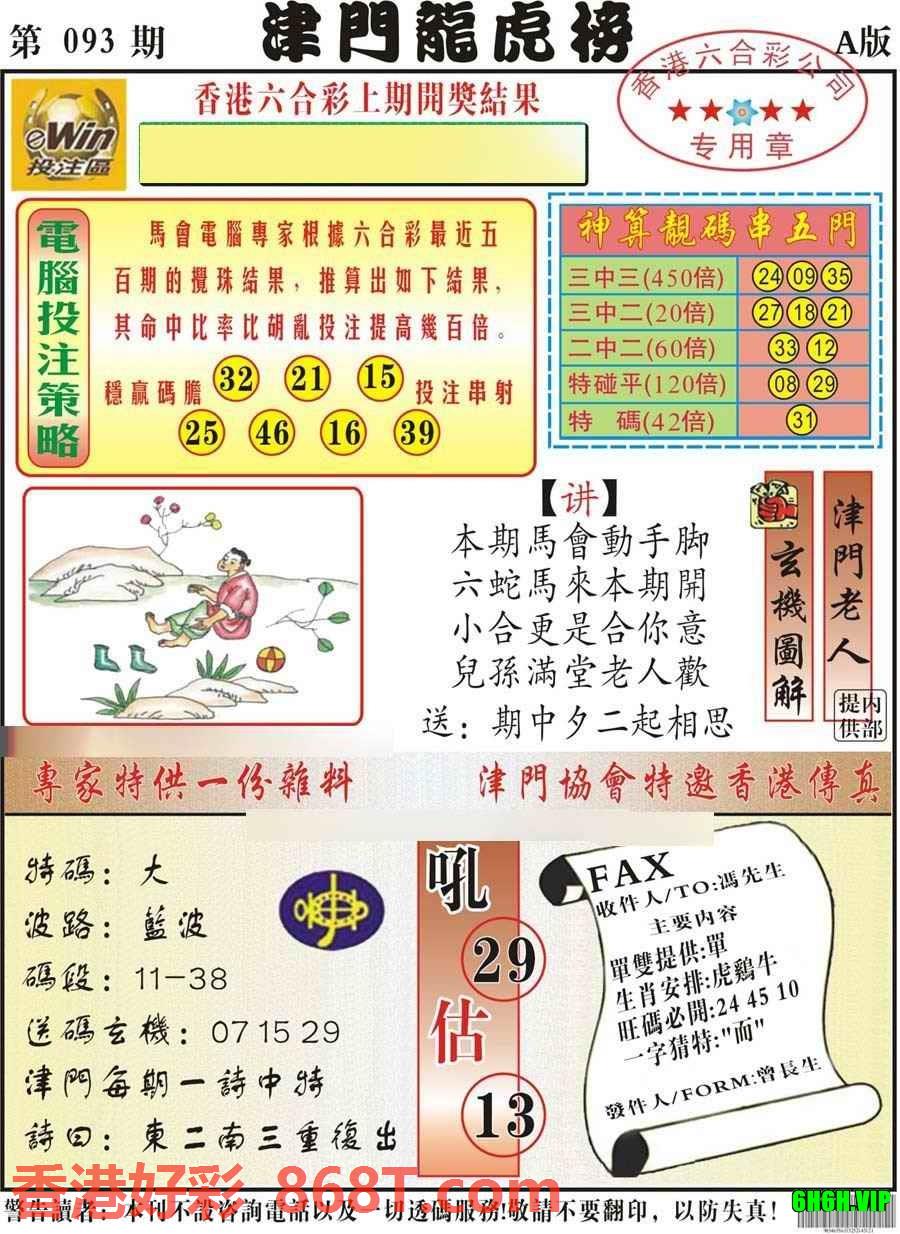 第 093 期
津門龍虎榜
A版
eWin
投注區
香港六合彩上期開獎結果
香港六合彩公司
专用章
電腦投注策略
馬會電腦專家根據六合彩最近五
百期的攪珠結果，推算出如下結果，
其命中比率比胡亂投注提高幾百倍。
穩贏碼膽 32 21 15 投注串射
25 46 16 39
神算靚碼串五門
三中三(450倍) 24 09 35
三中二(20倍) 27 18 21
二中二(60倍) 33 12
特碰平(120倍) 08 29
特 碼(42倍) 31
【讲】
本期馬會動手脚
六蛇馬來本期開
小合更是合你意
兒孫滿堂老人歡
送：期中夕二起相思
玄機圖解
津門老人
内部提供
專家特供一份雜料
津門協會特邀香港傳真
特碼：大
波路：藍波
碼段：11-38
送碼玄機：07 15 29
津門每期一詩中特
詩曰：東二南三重復出
吼
29
估
13
FAX
收件人/TO:馮先生
主要内容
單雙提供:單
生肖安排:虎鷄牛
旺碼必開:24 45 10
一字猜特:"而"
發件人/FORM:曾長生
香港好彩 868T.com
警告讀者：本刊不設咨詢電話以及一切透碼服務!敬請不要翻印，以防失真!
6H6H.VIP